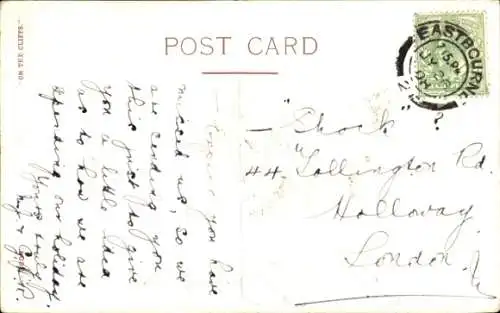 "ON THE CLIFFS."
POST CARD
EASTBOURNE
you have
missed us, so we
are sending you
this just to give
you a little idea
as to how we are
spending our holiday.
Yours truly
"Shock"?
44 Tollington Rd.
Holloway
London
N.